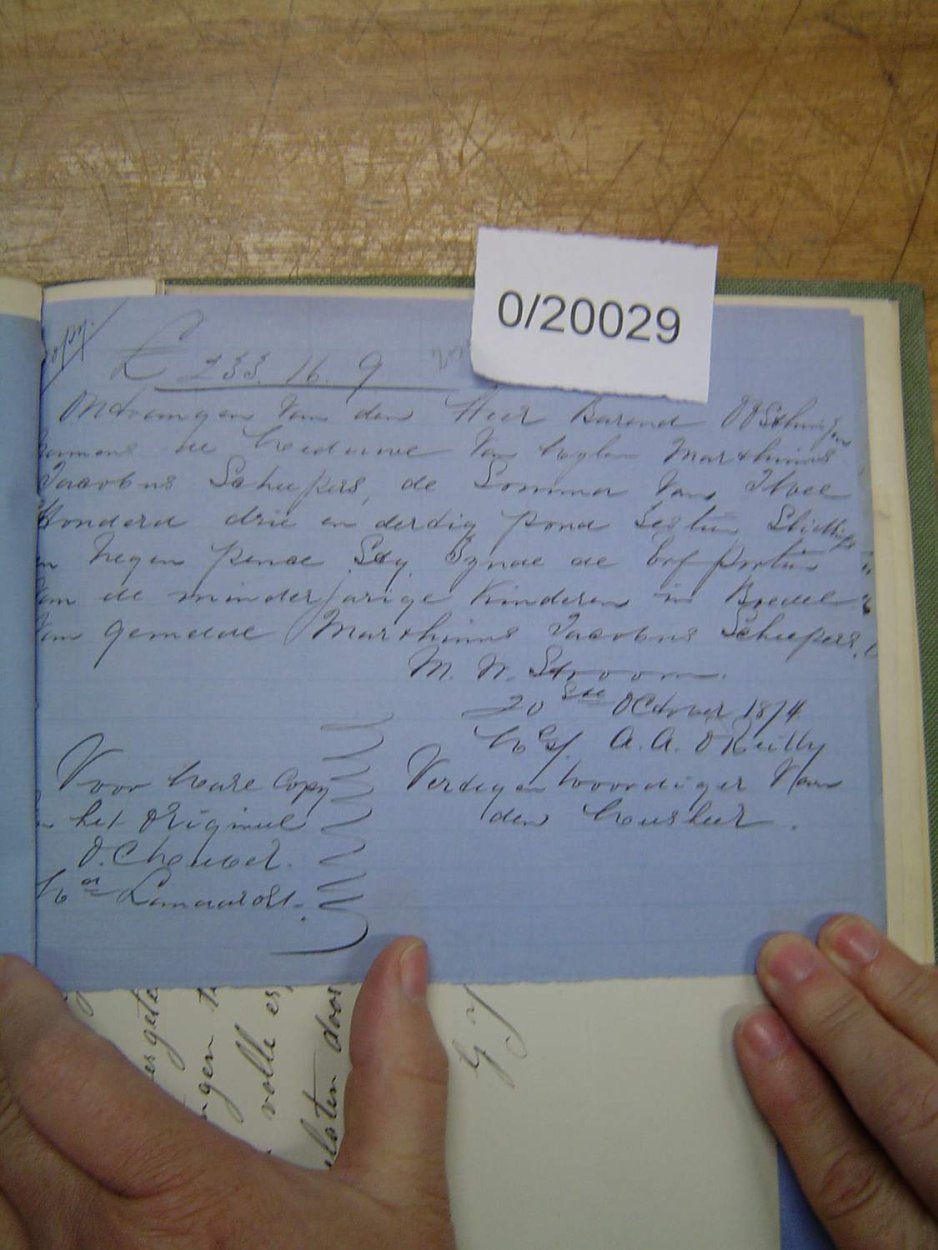 0/20029
Copy.
£ 233. 16. 9
Ontvangen van den Heer Barend
namens de Weduwe van wylen Marthinus
Jacobus Schepers, de Somma van Twee
Honderd drie en dertig pond Sestin
en Negen pence Stg. Zynde de Erfportie
van de minderjarige Kinderen in Boedel
van gemelde Marthinus Jacobus Schepers.
M. W. Stroom.
20ste October 1874
A. A. OReilly
Vertegenwoordiger van
den Weesheer.
Voor Ware Copy
het Origineel
Landdrost.
volle
laten door